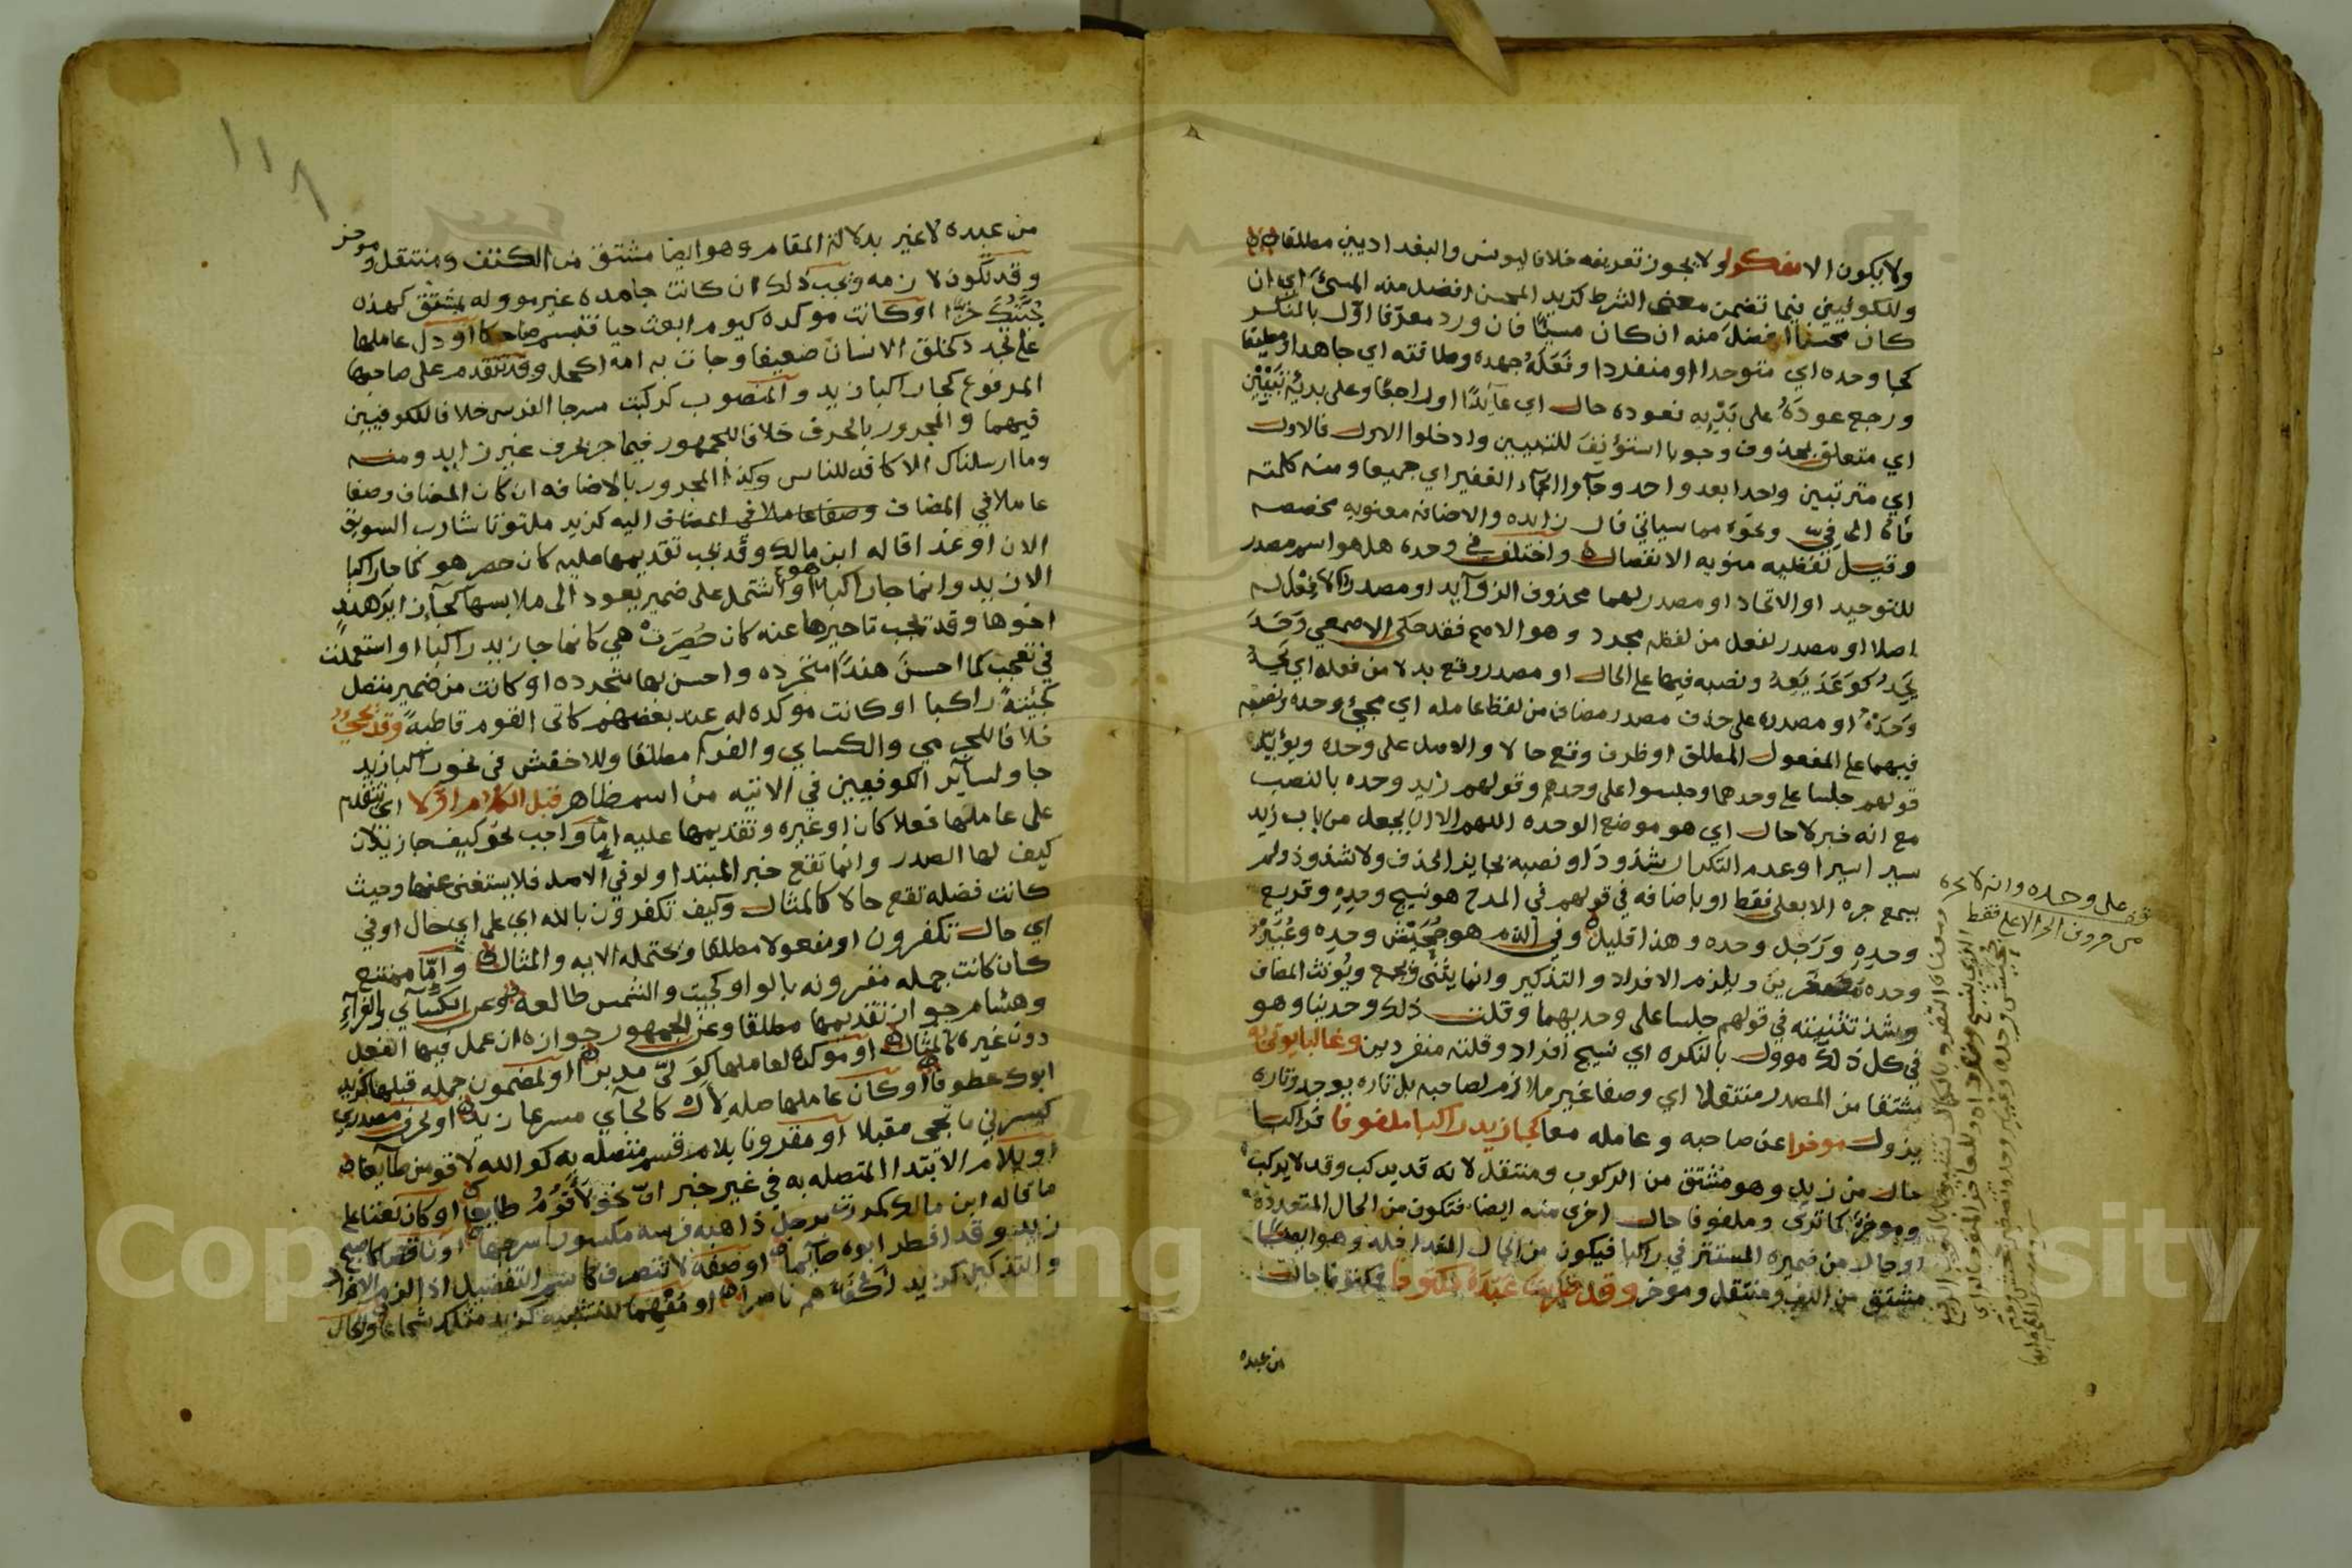 ولا يكون الا منكورا ولا يجوز تعريفه خلافا ليونس والبغداديين مطلقا
وللكوفيين فيما تضمن معنى الشرط كزيد المحسن افضل منه المسئ اي ان
كان محسنا افضل منه ان كان مسيئا فان ورد معرفا اول بالمنكر
كجا وحده اي متوحدا او منفردا وفعله جهده وطاقته اي جاهدا ومطيقا
ورجع عوده على بدئه فعوده حال اي عائدا او راجعا وعلى بدئه تبيين
اي متعلق بمحذوف وجوبا استؤنف للتبيين وادخلوا الاول فالاول
اي مترتبين واحدا بعد واحد وجاؤا الجماء الغفير اي جميعا ومنه كلمته
فاه الى في ونحوه مما سياتي قال زايده والاضافه معنويه مخصصه
وقيل لفظيه منويه الانفصال واختلف في وحده هل هو اسم مصدر
للتوحيد او الاتحاد او مصدر لهما محذوف الزوايد او مصدر لا فعل له
اصلا او مصدر لفعل من لفظه مجرد وهو الاصح فقد حكى الاصمعي وحد
يحد كوعد يعد ونصبه فيها على الحال او مصدر وقع بدلا من فعله اي يحد
وحده او مصدر على حذف مصدر مضاف من لفظ عامله اي مجئ وحده ونصبه
فيهما على المفعول المطلق او ظرف وقع حالا والاصل على وحده ويؤيده
قولهم جلسا على وحدهما وجلسوا على وحدهم وقولهم زيد وحده بالنصب
مع انه خبر لا حال اي هو موضع الوحده اللهم الا ان يجعل من باب زيد
سير اسيرا وعدم التكرار شذوذا ونصبه بجايز الحذف ولا شذوذ ولم
يسمع جره الا بعلى فقط او باضافه في قولهم في المدح هو نسيج وحده وقريع
وحده ورجل وحده وهذا قليل وفي الذم هو جحيش وحده وعيير
وحده مصغرين ويلزم الافراد والتذكير وانما يثنى ويجمع ويؤنث المضاف
وشذ تثنيته في قولهم جلسا على وحديهما وقلت ذلك وحدينا وهو
في كل ذلك موول بالنكره اي نسيج افراد وقلته منفردين وغالبا يوتى به
مشتقا من المصدر منتقلا اي وصفا غير ملازم لصاحبه بل تاره يوجد وتاره
يزول موخرا عن صاحبه وعامله معا كجا زيد راكبا ملفوفا فراكبا
حال من زيد وهو مشتق من الركوب ومنتقل لانه قد يركب وقد لا يركب
وموخر كما ترى وملفوفا حال اخرى منه ايضا فتكون من الحال المتعدده
او حال من ضميره المستتر في راكبا فيكون من الحال المتداخله وهو ايضا
مشتق من اللف ومنتقل وموخر وقد ضربت عبده مكتوفا فمكتوفا حال
من عبده
على وحده وانه لا يجره
من حروف الجر الا على فقط
١١٨
من عبده لا غير بدلالة المقام وهو ايضا مشتق من الكتف ومنتقل وموخر
وقد تكون لازمه ويجب ذلك ان كانت جامده غير مووله بمشتق كهذه
جبتك خزا او كانت موكده كيوم ابعث حيا فتبسم ضاحكا او دل عاملها
على تجدد كخلق الانسان ضعيفا وجات به امه اكحل وقد تتقدم على صاحبها
المرفوع كجا راكبا زيد والمنصوب كركبت مسرجا الفرس خلافا للكوفيين
فيهما والمجرور بالحرف خلافا للجمهور فيما جر بحرف غير زايد ومنه
وما ارسلناك الا كافه للناس وكذا المجرور بالاضافه ان كان المضاف وصفا
عاملا في المضاف اليه كزيد ملتوتا شارب السويق
الان او غدا قاله ابن مالك وقد يجب تقديمها عليه كان حصر هو كما جا راكبا
الا زيد وانما جا راكبا هو او اشتمل على ضمير يعود الى ملابسها كجا زاير هند
اخوها وقد يجب تاخيرها عنه كان حصرت هي كانما جا زيد راكبا او استعملت
في تعجب كما احسن هندا متجرده واحسن بها متجرده او كانت من ضمير متصل
كجئته راكبا او كانت موكده له عند بعضهم كاتى القوم قاطبة وقد تجيء
خلافا للجرمي والكساي والفرا مطلقا وللاخفش في نحو راكبا زيد
جا ولساير الكوفيين في الاتيه من اسم ظاهر قبل الكلام اولا اي تتقدم
على عاملها فعلا كان او غيره وتقديمها عليه اما واجب نحو كيف جا زيد لان
كيف لها الصدر وانما تقع خبر المبتدا ولو في الاصل فلا يستغنى عنها وحيث
كانت فضله تقع حالا كالمثال وكيف تكفرون بالله اي على اي حال او في
اي حال تكفرون او مفعولا مطلقا وتحتمله الايه والمثال واما ممتنع
كان كانت جمله مقرونه بالواو كجيت والشمس طالعه وعن الكسائي والفراء
وهشام جواز تقديمها مطلقا وعن الجمهور جوازه ان عمل فيها الفعل
دون غيره كالمثال او موكده لعاملها كولى مدبرا او لمضمون جمله قبلها كزيد
ابوك عطوفا او كان عاملها صله لال كالجاي مسرعا زيد او لحرف مصدري
كيسرني ما تجي مقبلا او مقرونا بلام قسم متصله به كوالله لاقومن طايعا
او بلام الابتدا المتصله به في غير خبر ان نحو لاقوم طايعا او كان نعتا على
ما قاله ابن مالك كمررت برجل ذاهبه فرسه مكسورا سرجها او ناقصا كاصبح
زيد وقد افطر ابوه صايما او صفة لا تتصرف كاسم التفضيل اذا لزم الافراد
والتذكير كزيد اكفاهم ناصرا او مفهما للتشبيه كزيد مثلك شجاعا والحال